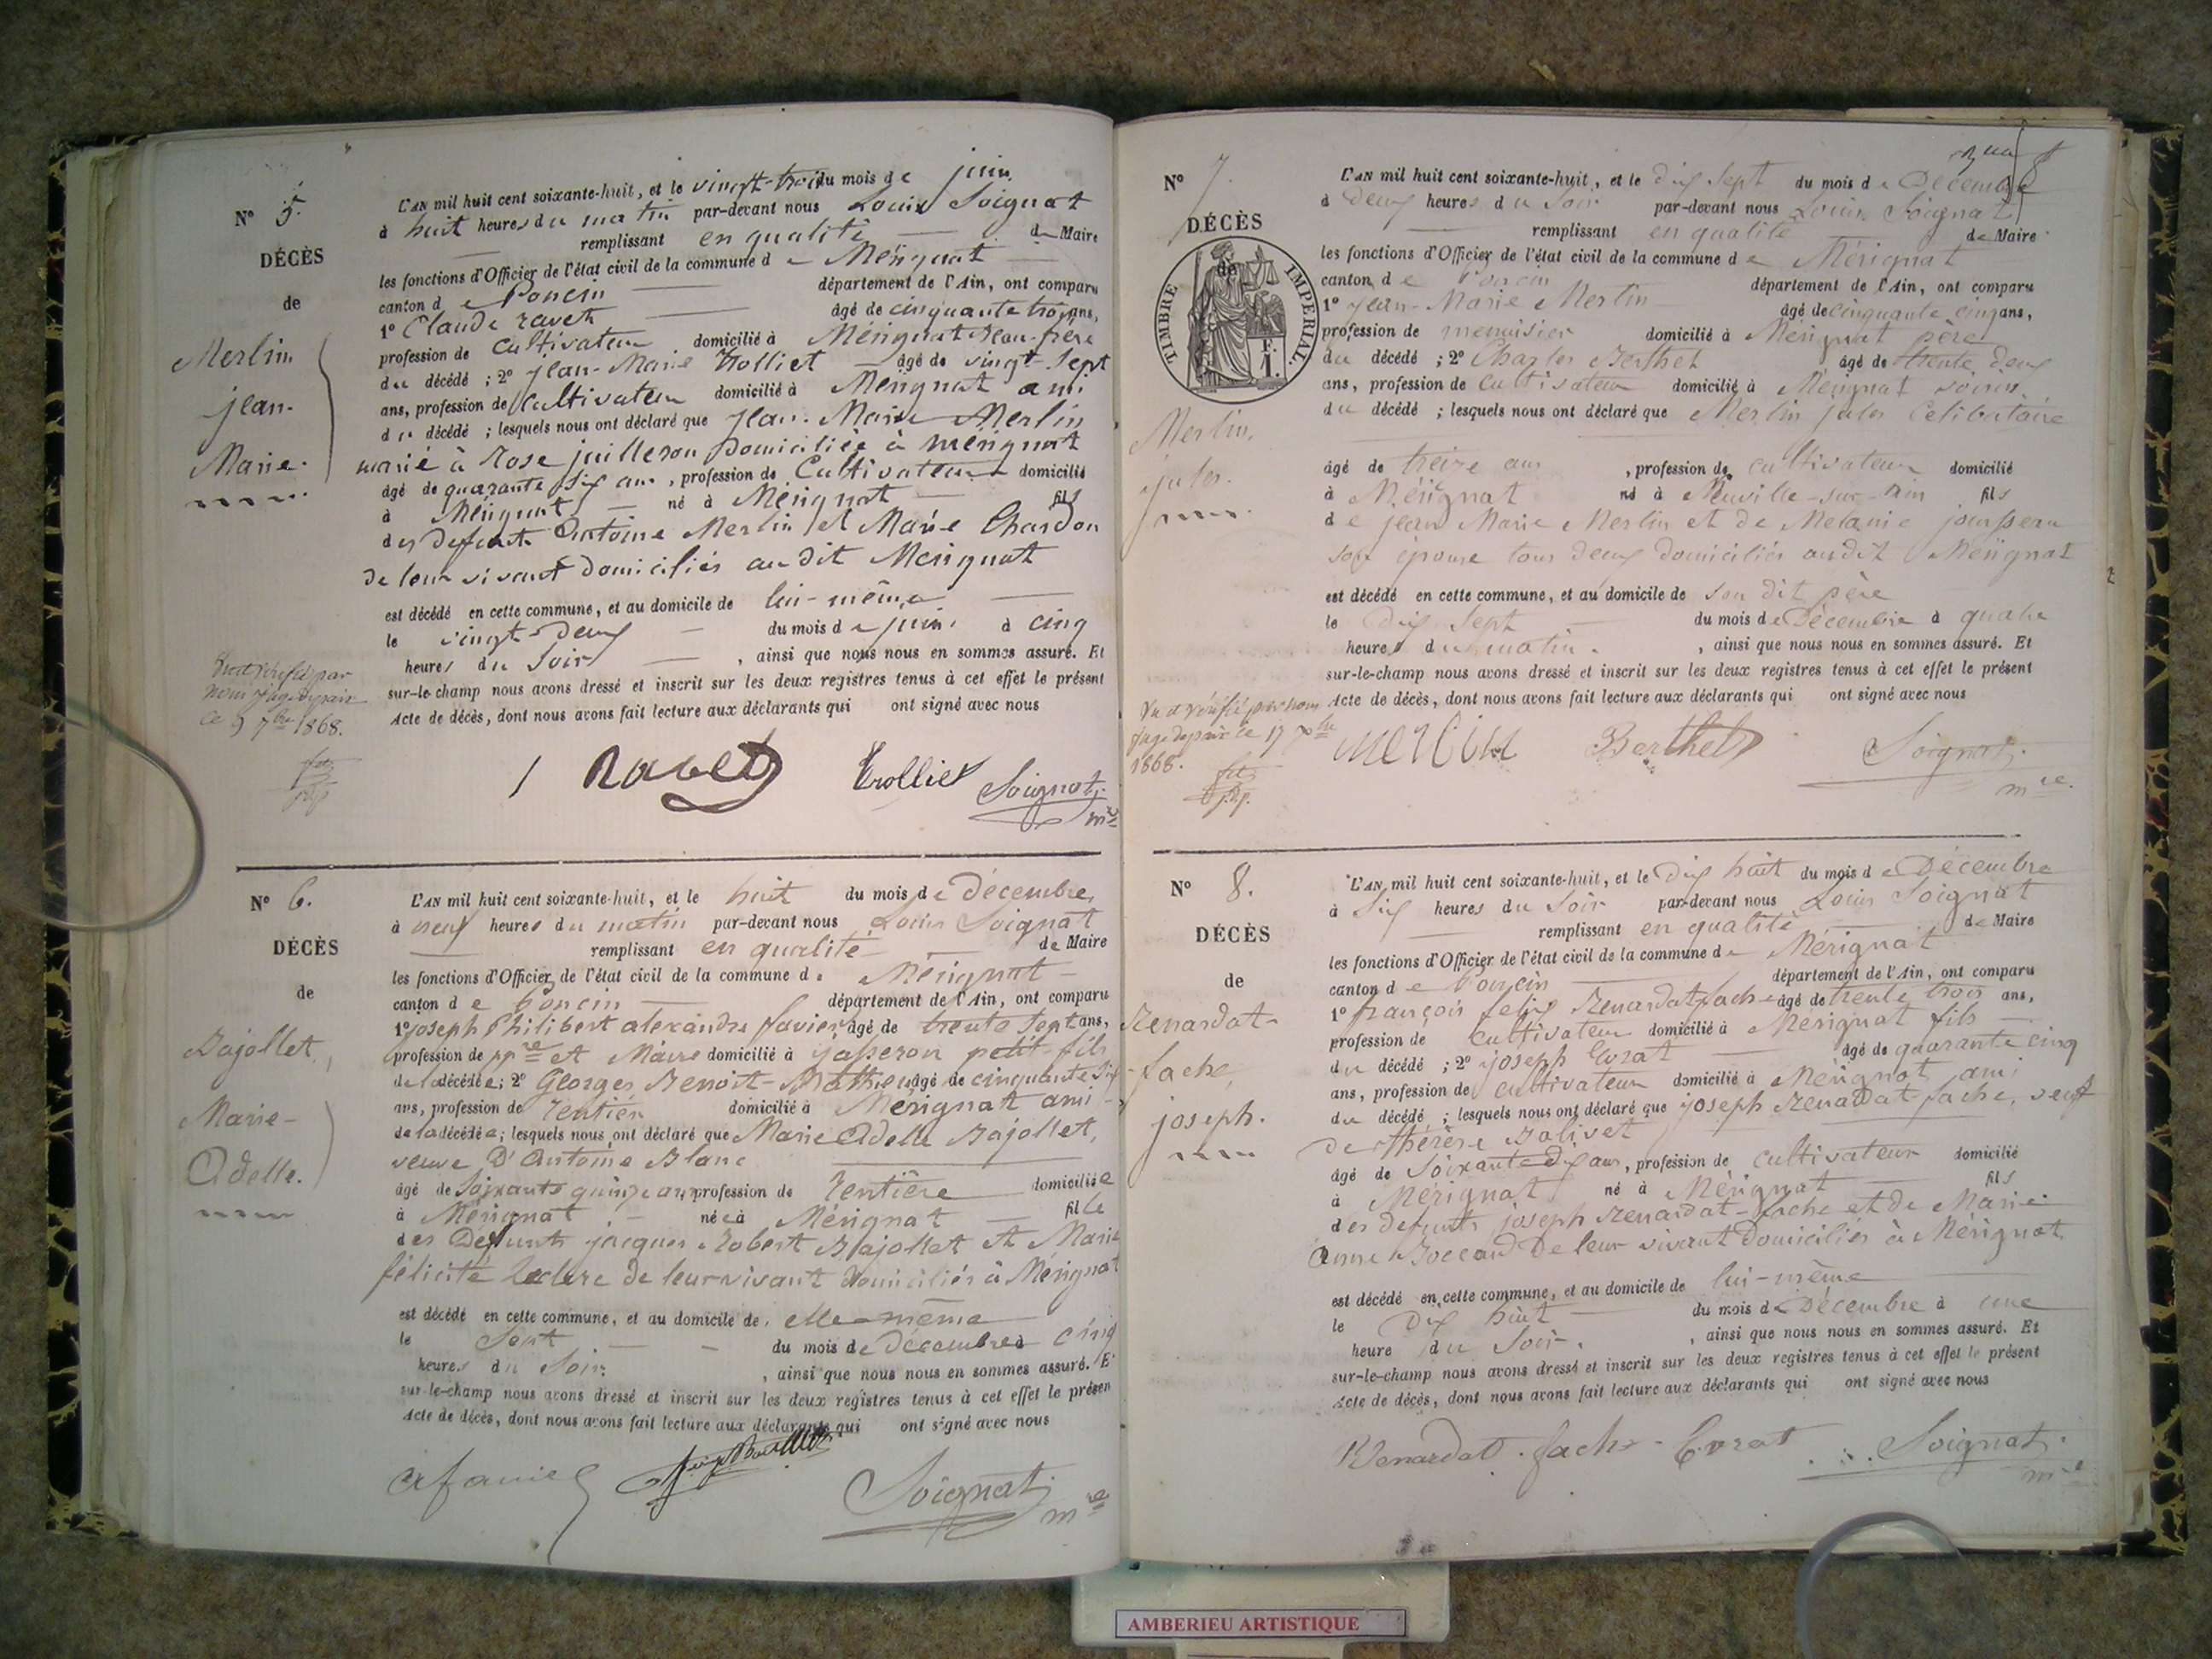 N° 5.
DÉCÈS
de
Merlin
jean-
Marie.
L'AN mil huit cent soixante-huit, et le vingt-trois du mois de juin
à huit heures du matin par-devant nous Louis Soignat
remplissant en qualité de Maire
les fonctions d'Officier de l'état civil de la commune de Mérignat
canton de Poncin département de l'Ain, ont comparu
1° Claude ravet âgé de cinquante trois ans,
profession de cultivateur domicilié à Mérignat Beau-frère
du décédé ; 2° jean-Marie Trolliet âgé de vingt-sept
ans, profession de Cultivateur domicilié à Mérignat ami
du décédé ; lesquels nous ont déclaré que jean-Marie Merlin
marié à Rose juilleron Domiciliée à mérignat
âgé de quarante six ans, profession de Cultivateur domicilié
à Mérignat né à Mérignat fils
des defunts Antoine Merlin et Marie Chardon
de leur vivant domiciliés au dit Mérignat
est décédé en cette commune, et au domicile de lui-même
le vingt-deux du mois de juin à cinq
heures du Soir, ainsi que nous nous en sommes assuré. Et
sur-le-champ nous avons dressé et inscrit sur les deux registres tenus à cet effet le présent
Acte de décès, dont nous avons fait lecture aux déclarants qui ont signé avec nous
vérifié par
nous juge de paix
le 9 7bre 1868.
Ravet Trolliet Soignat
mre
N° 6.
DÉCÈS
de
Bajollet,
Marie-
Adelle.
L'AN mil huit cent soixante-huit, et le huit du mois de décembre
à neuf heures du matin par-devant nous Louis Soignat
remplissant en qualité de Maire
les fonctions d'Officier de l'état civil de la commune de Mérignat
canton de Poncin département de l'Ain, ont comparu
1° joseph Philibert alexandre favier âgé de trente sept ans,
profession de pp.re et Maire domicilié à jasseron petit-fils
de la décédée; 2° Georges Benoit-Mathieu âgé de cinquante six
ans, profession de rentier domicilié à Mérignat ami
de la décédée; lesquels nous ont déclaré que Marie Adelle Bajollet,
veuve D'Antoine Blanc
âgé de Soixante quinze ans profession de rentière domiciliée
à Mérignat née à Mérignat fille
des Défunts jacques Robert Bajollet et Marie
félicité leclerc de leur vivant domiciliés à Mérignat
est décédé en cette commune, et au domicile de elle-même
le Sept du mois de décembre à cinq
heures du Soir, ainsi que nous nous en sommes assuré. Et
sur-le-champ nous avons dressé et inscrit sur les deux registres tenus à cet effet le présen
Acte de décès, dont nous avons fait lecture aux déclarants qui ont signé avec nous
afavier
Soignat
mre
N° 7.
DÉCÈS
de
TIMBRE IMPERIAL.
F.
1.
Merlin,
jules.
L'AN mil huit cent soixante-huit, et le dix sept du mois de Décembre
à deux heures du Soir par-devant nous Louis Soignat
remplissant en qualité de Maire
les fonctions d'Officier de l'état civil de la commune de Mérignat
canton de Poncin département de l'Ain, ont comparu
1° jean-Marie Merlin âgé de cinquante cinq ans,
profession de menuisier domicilié à Mérignat père
du décédé ; 2° Charles Berthet âgé de trente deux
ans, profession de cultivateur domicilié à Mérignat voisin
du décédé ; lesquels nous ont déclaré que Merlin jules Célibataire
âgé de treize ans, profession de cultivateur domicilié
à Mérignat né à Neuville-sur-Ain fils
de jean Marie Merlin et de Mélanie jousseau
son épouse tous deux domiciliés audit Mérignat
est décédé en cette commune, et au domicile de son dit père
le Dix Sept du mois de Décembre à quatre
heures du matin, ainsi que nous nous en sommes assuré. Et
sur-le-champ nous avons dressé et inscrit sur les deux registres tenus à cet effet le présent
Acte de décès, dont nous avons fait lecture aux déclarants qui ont signé avec nous
Vu et vérifié par nous
juge de paix le 17
1868.
Merlin Berthet Soignat
mre.
N° 8.
DÉCÈS
de
Renardat-
fache,
joseph.
L'AN mil huit cent soixante-huit, et le Dix huit du mois de Décembre
à Six heures du Soir par-devant nous Louis Soignat
remplissant en qualité de Maire
les fonctions d'Officier de l'état civil de la commune de Mérignat
canton de Poncin département de l'Ain, ont comparu
1° françois felix Renardat fache âgé de trente trois ans,
profession de cultivateur domicilié à Mérignat fils
du décédé ; 2° joseph Curat âgé de quarante cinq
ans, profession de cultivateur domicilié à Mérignat ami
du décédé ; lesquels nous ont déclaré que joseph Renardat-fache, veuf
de thérèse Balivet
âgé de Soixante dix ans, profession de cultivateur domicilié
à Mérignat né à Mérignat fils
des defunts joseph Renardat-fache et de Marie
anne Boccard De leur vivant Domiciliés à Mérignat
est décédé en cette commune, et au domicile de lui-même
le Dix huit du mois de Décembre à une
heure du Soir, ainsi que nous nous en sommes assuré. Et
sur-le-champ nous avons dressé et inscrit sur les deux registres tenus à cet effet le présent
Acte de décès, dont nous avons fait lecture aux déclarants qui ont signé avec nous
Renardat-fache Curat Soignat
mre
AMBERIEU ARTISTIQUE